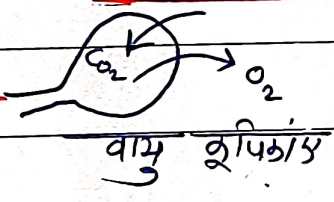 CO2
O2
वायु कूपिकाएं